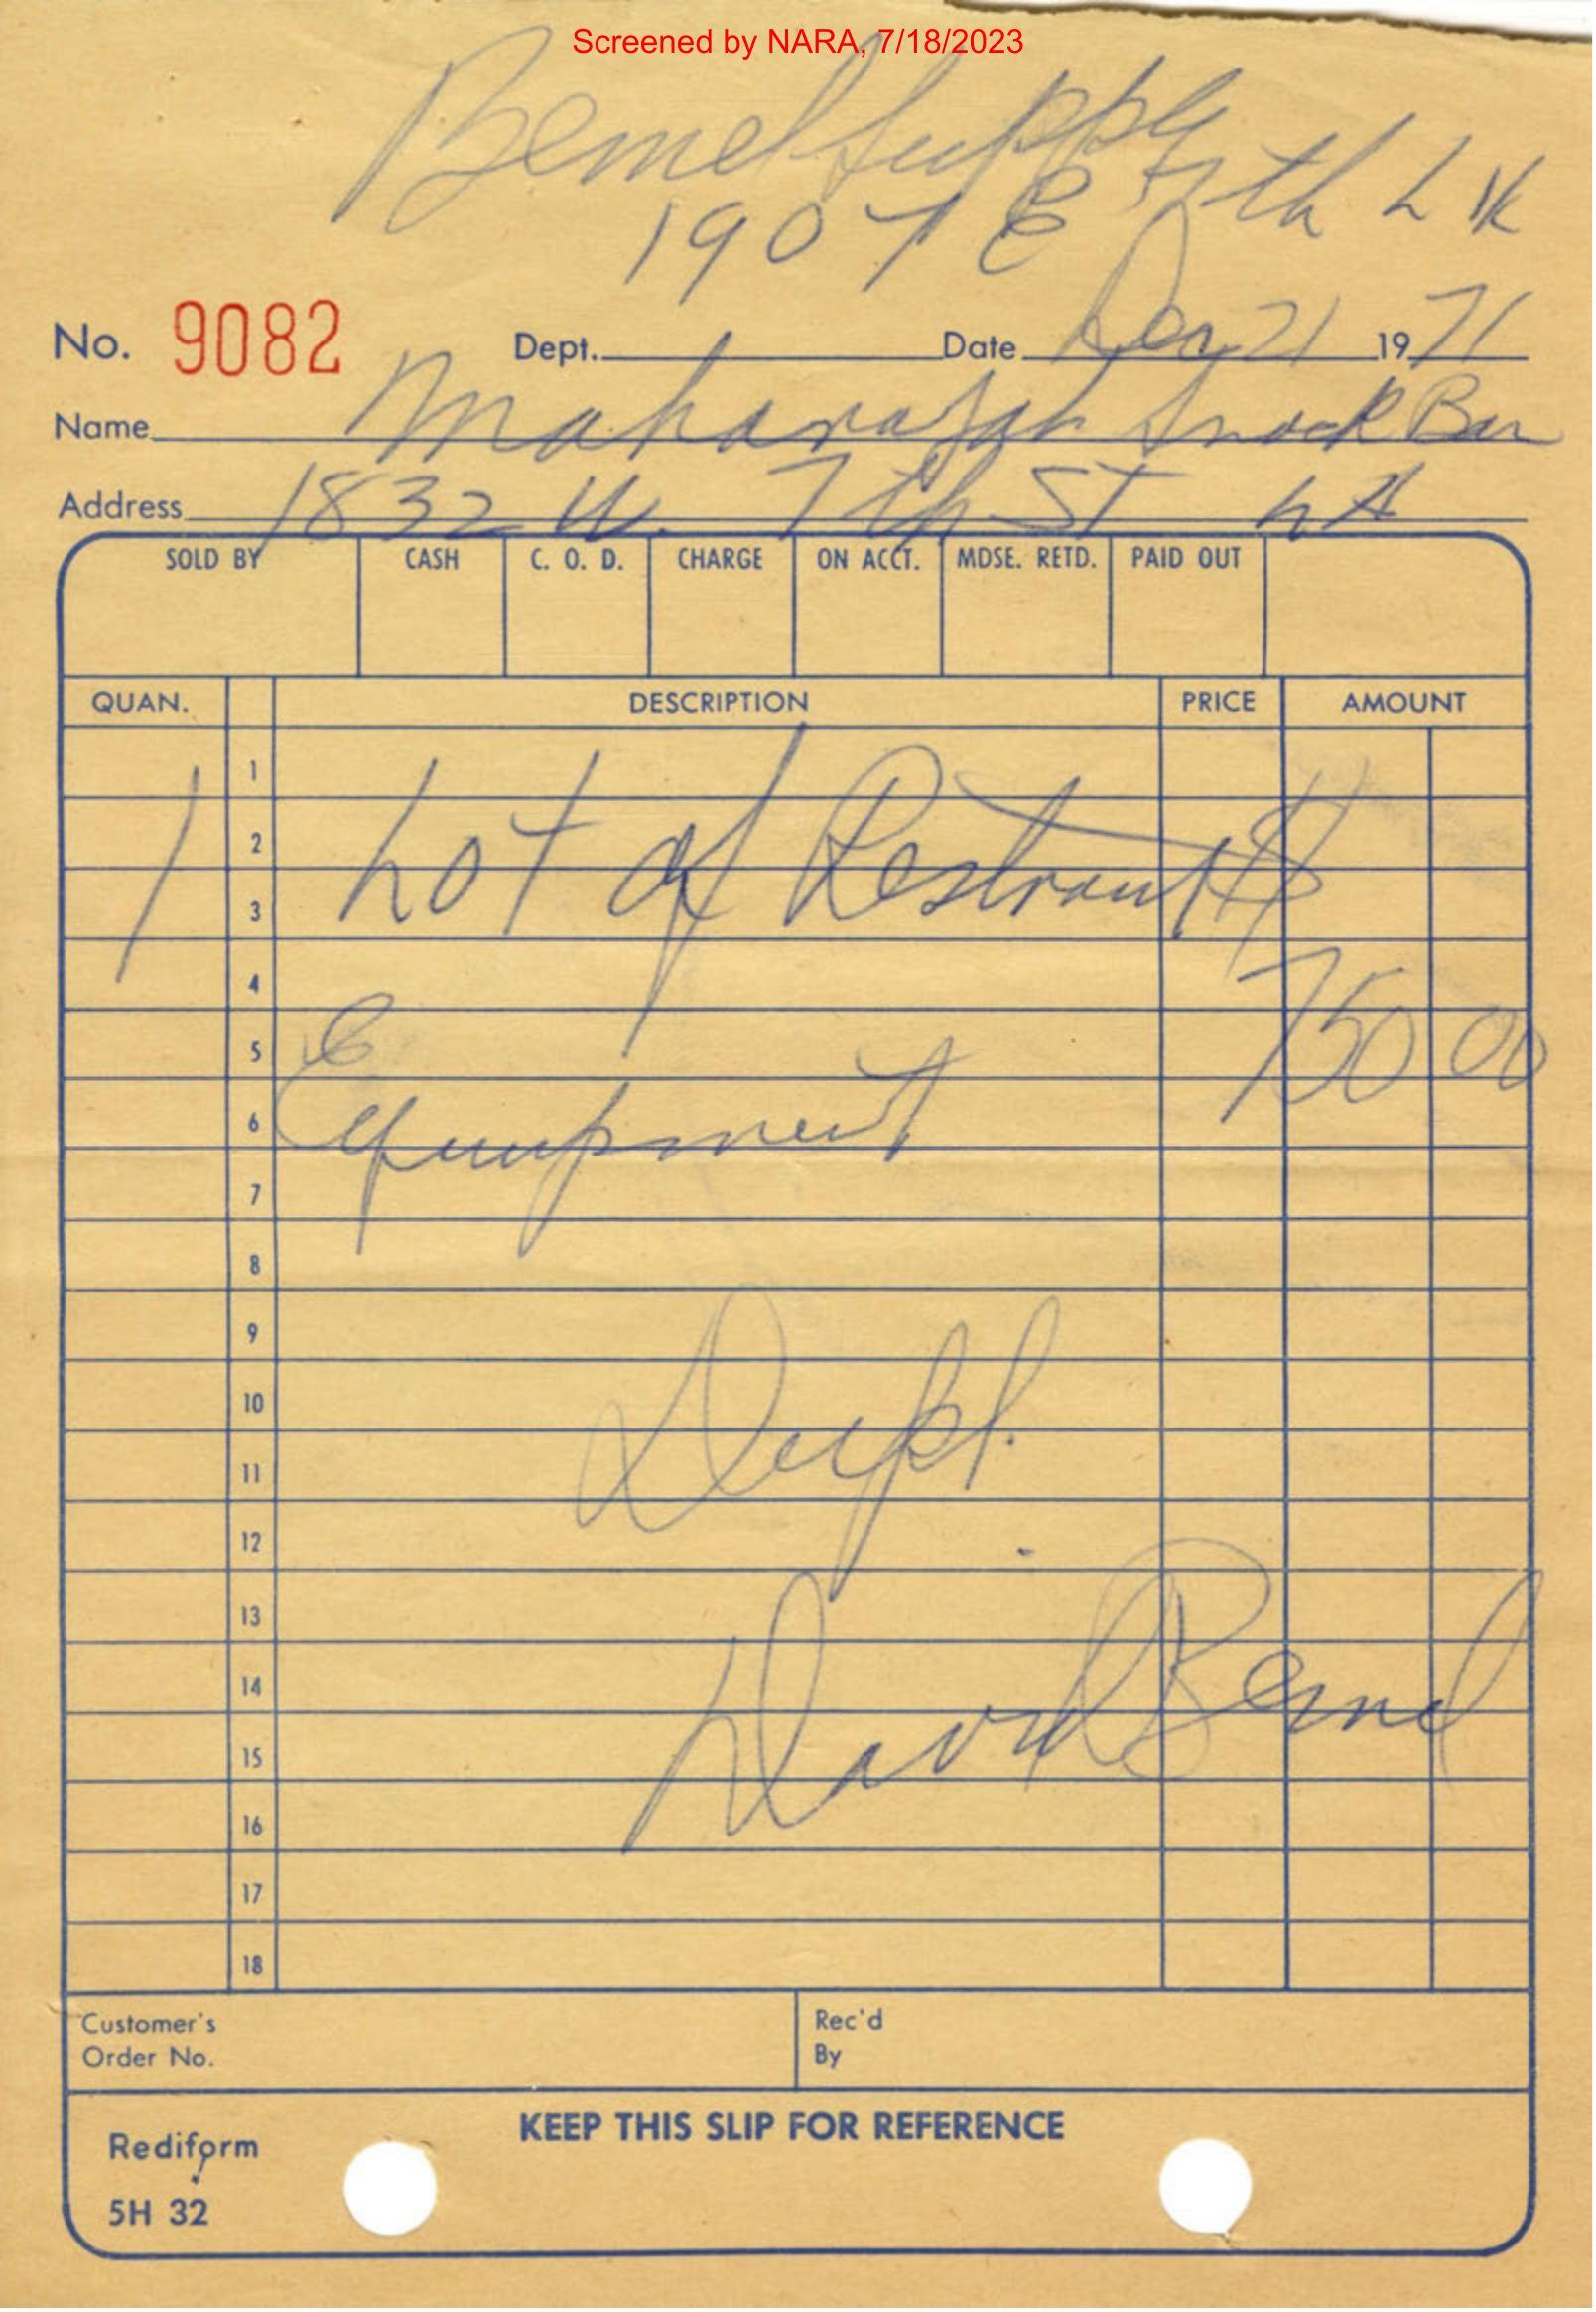 Screened by NARA, 7/18/2023
Bemel Supply
1907 E 7th
No. 9082 Dept. Date Dec 21 1971
Name Maharajah Snack Bar
Address 1832 W. 7th St LA
SOLD BY CASH C. O. D. CHARGE ON ACCT. MDSE. RETD. PAID OUT
QUAN. DESCRIPTION PRICE AMOUNT
1
2
1 Lot of Restraunt $
3
4
750 00
5
6
Equipment
7
8
9
10
Dupl.
11
12
13
14
David Bemel
15
16
17
18
Customer's Order No. Rec'd By
KEEP THIS SLIP FOR REFERENCE
Rediform
5H 32